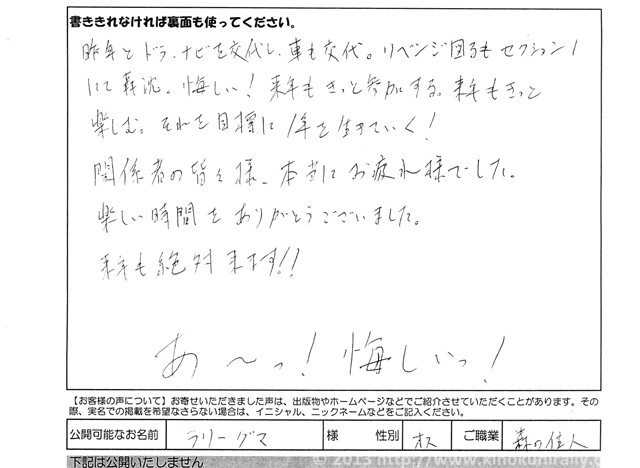 書ききれなければ裏面も使ってください。
昨年とドラ、ナビを交代し、車も交代。リベンジ図るもセクション1
にて轟沈。悔しい！来年もきっと参加する。来年もきっと
楽しむ。それを目標に1年を生きていく！
関係者の皆々様、本当にお疲れ様でした。
楽しい時間をありがとうございました。
来年も絶対来ます!!
あ〜っ！悔しいっ！
【お客様の声について】お寄せいただきました声は、出版物やホームページなどでご紹介させていただくことがあります。その
際、実名での掲載を希望なさらない場合は、イニシャル、ニックネームなどをご記入ください。
公開可能なお名前 ラリーグマ 様 性別 オス ご職業 森の住人
下記は公開いたしません
© 2013 http://www.kinokunirally.c